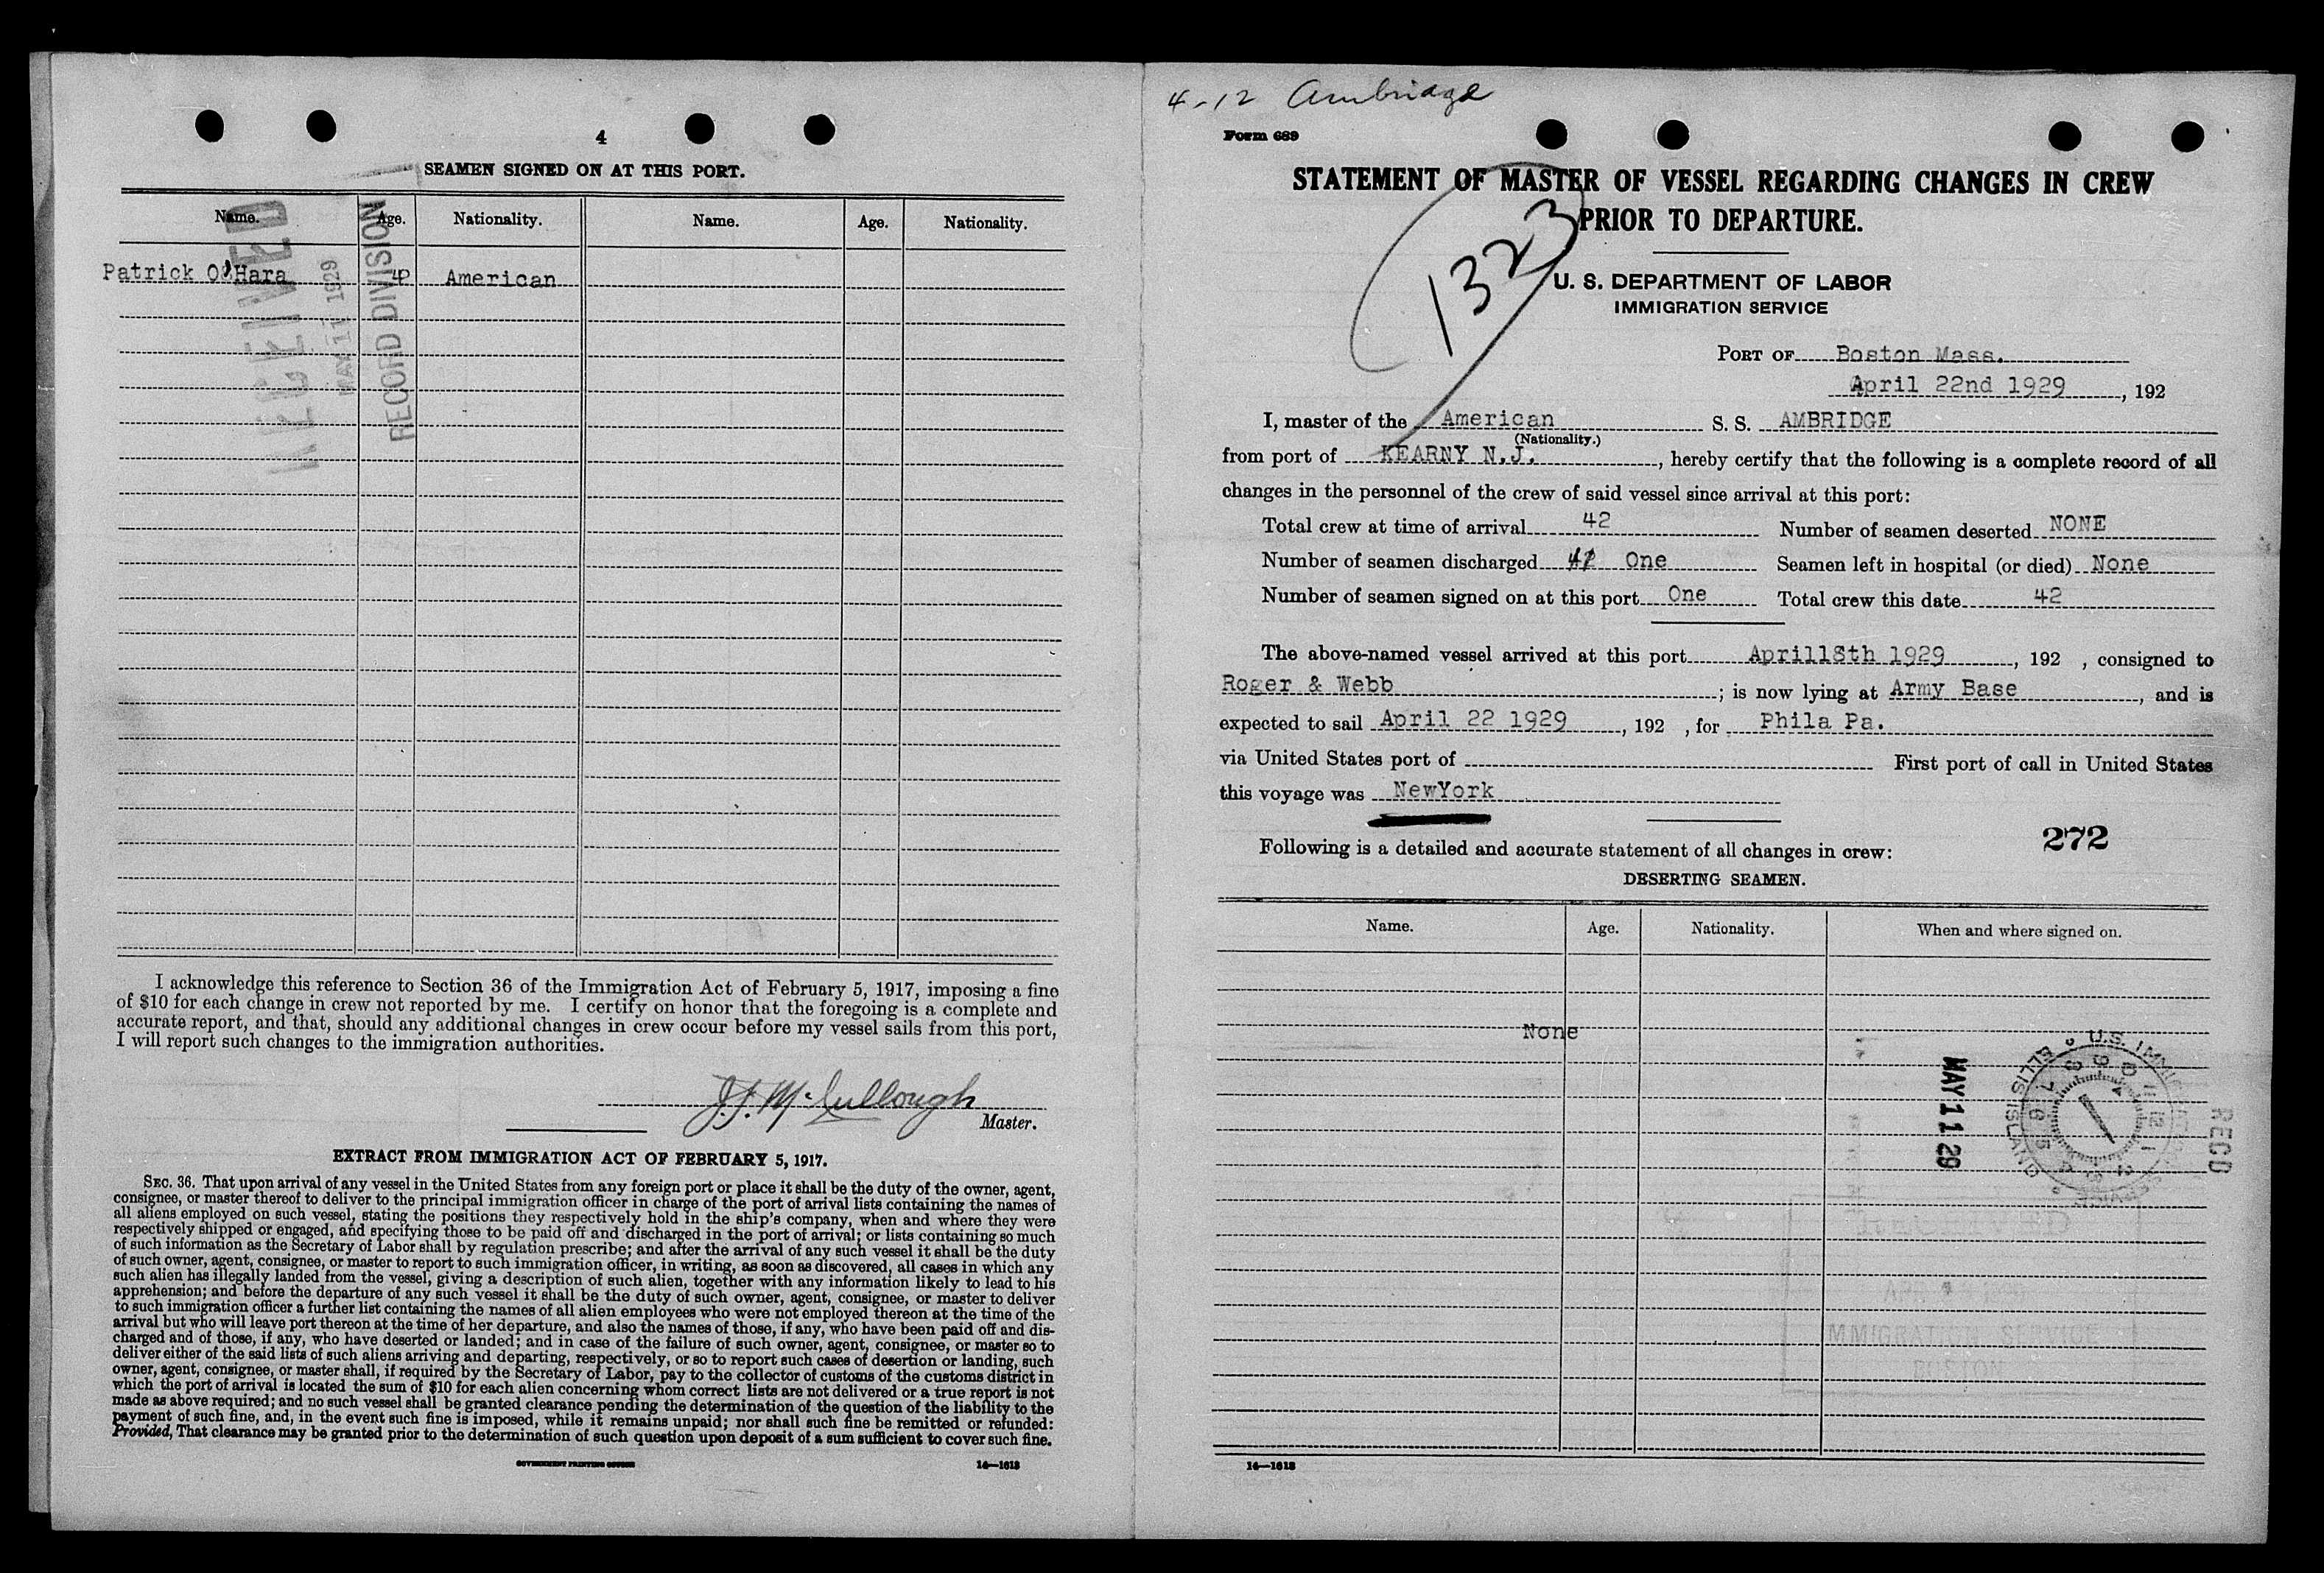 4
SEAMEN SIGNED ON AT THIS PORT.
Name. Age. Nationality. Name. Age. Nationality.
Patrick O'Hara 40 American
RECEIVED
MAY 11 1929
RECORD DIVISION
I acknowledge this reference to Section 36 of the Immigration Act of February 5, 1917, imposing a fine
of $10 for each change in crew not reported by me. I certify on honor that the foregoing is a complete and
accurate report, and that, should any additional changes in crew occur before my vessel sails from this port,
I will report such changes to the immigration authorities.
J.J. McCullough
Master.
EXTRACT FROM IMMIGRATION ACT OF FEBRUARY 5, 1917.
SEC. 36. That upon arrival of any vessel in the United States from any foreign port or place it shall be the duty of the owner, agent,
consignee, or master thereof to deliver to the principal immigration officer in charge of the port of arrival lists containing the names of
all aliens employed on such vessel, stating the positions they respectively hold in the ship's company, when and where they were
respectively shipped or engaged, and specifying those to be paid off and discharged in the port of arrival; or lists containing so much
of such information as the Secretary of Labor shall by regulation prescribe; and after the arrival of any such vessel it shall be the duty
of such owner, agent, consignee, or master to report to such immigration officer, in writing, as soon as discovered, all cases in which any
such alien has illegally landed from the vessel, giving a description of such alien, together with any information likely to lead to his
apprehension; and before the departure of any such vessel it shall be the duty of such owner, agent, consignee, or master to deliver
to such immigration officer a further list containing the names of all alien employees who were not employed thereon at the time of the
arrival but who will leave port thereon at the time of her departure, and also the names of those, if any, who have been paid off and dis-
charged and of those, if any, who have deserted or landed; and in case of the failure of such owner, agent, consignee, or master so to
deliver either of the said lists of such aliens arriving and departing, respectively, or so to report such cases of desertion or landing, such
owner, agent, consignee, or master shall, if required by the Secretary of Labor, pay to the collector of customs of the customs district in
which the port of arrival is located the sum of $10 for each alien concerning whom correct lists are not delivered or a true report is not
made as above required; and no such vessel shall be granted clearance pending the determination of the question of the liability to the
payment of such fine, and, in the event such fine is imposed, while it remains unpaid; nor shall such fine be remitted or refunded:
Provided, That clearance may be granted prior to the determination of such question upon deposit of a sum sufficient to cover such fine.
GOVERNMENT PRINTING OFFICE 14—1613
4-12 Ambridge
Form 689
STATEMENT OF MASTER OF VESSEL REGARDING CHANGES IN CREW
PRIOR TO DEPARTURE.
1323
U. S. DEPARTMENT OF LABOR
IMMIGRATION SERVICE
PORT OF Boston Mass.
April 22nd 1929, 192
I, master of the American S. S. AMBRIDGE
(Nationality.)
from port of KEARNY N.J., hereby certify that the following is a complete record of all
changes in the personnel of the crew of said vessel since arrival at this port:
Total crew at time of arrival 42 Number of seamen deserted NONE
Number of seamen discharged One Seamen left in hospital (or died) None
Number of seamen signed on at this port One Total crew this date 42
The above-named vessel arrived at this port April18th 1929, 192 , consigned to
Roger & Webb; is now lying at Army Base, and is
expected to sail April 22 1929, 192 , for Phila Pa.
via United States port of First port of call in United States
this voyage was NewYork
272
Following is a detailed and accurate statement of all changes in crew:
DESERTING SEAMEN.
Name. Age. Nationality. When and where signed on.
None
MAY 11 29
U.S. IMMIGRATION SERVICE ELLIS ISLAND
RECD
RECEIVED
IMMIGRATION SERVICE
BOSTON
14—1613